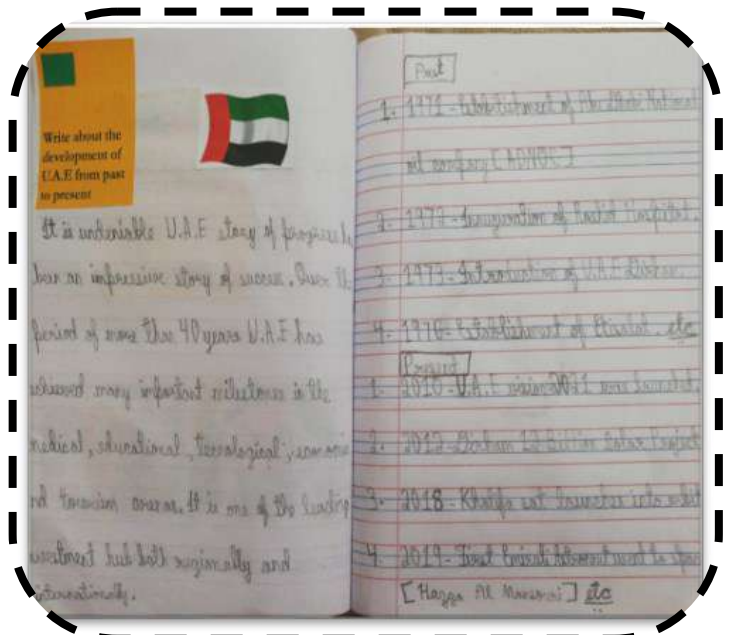 Write about the
development of
U.A.E from past
to present
It is undeniable U.A.E story of progress
been an impressive story of success. Over
period of more than 40 years U.A.E has
many important milestones in the
educational,
and tourism It is one of the leading
hub both regionally and
internationally.
Past
1. 1971 - Establishment of Abu Dhabi National
oil company [ADNOC]
2. Inauguration of Rashid Hospital.
3. 1973 - Introduction of U.A.E Dirham.
4. 1976 - Establishment of Etisalat. etc
Present
1. 2010 - U.A.E vision 2021 was launched.
2. 2012 - Dirham 12 Billion Solar Project
3. 2018 - Khalifa sat launches into orbit
4. 2019 - First Emirati Astronaut went to
[Hazza Al Mansouri] etc